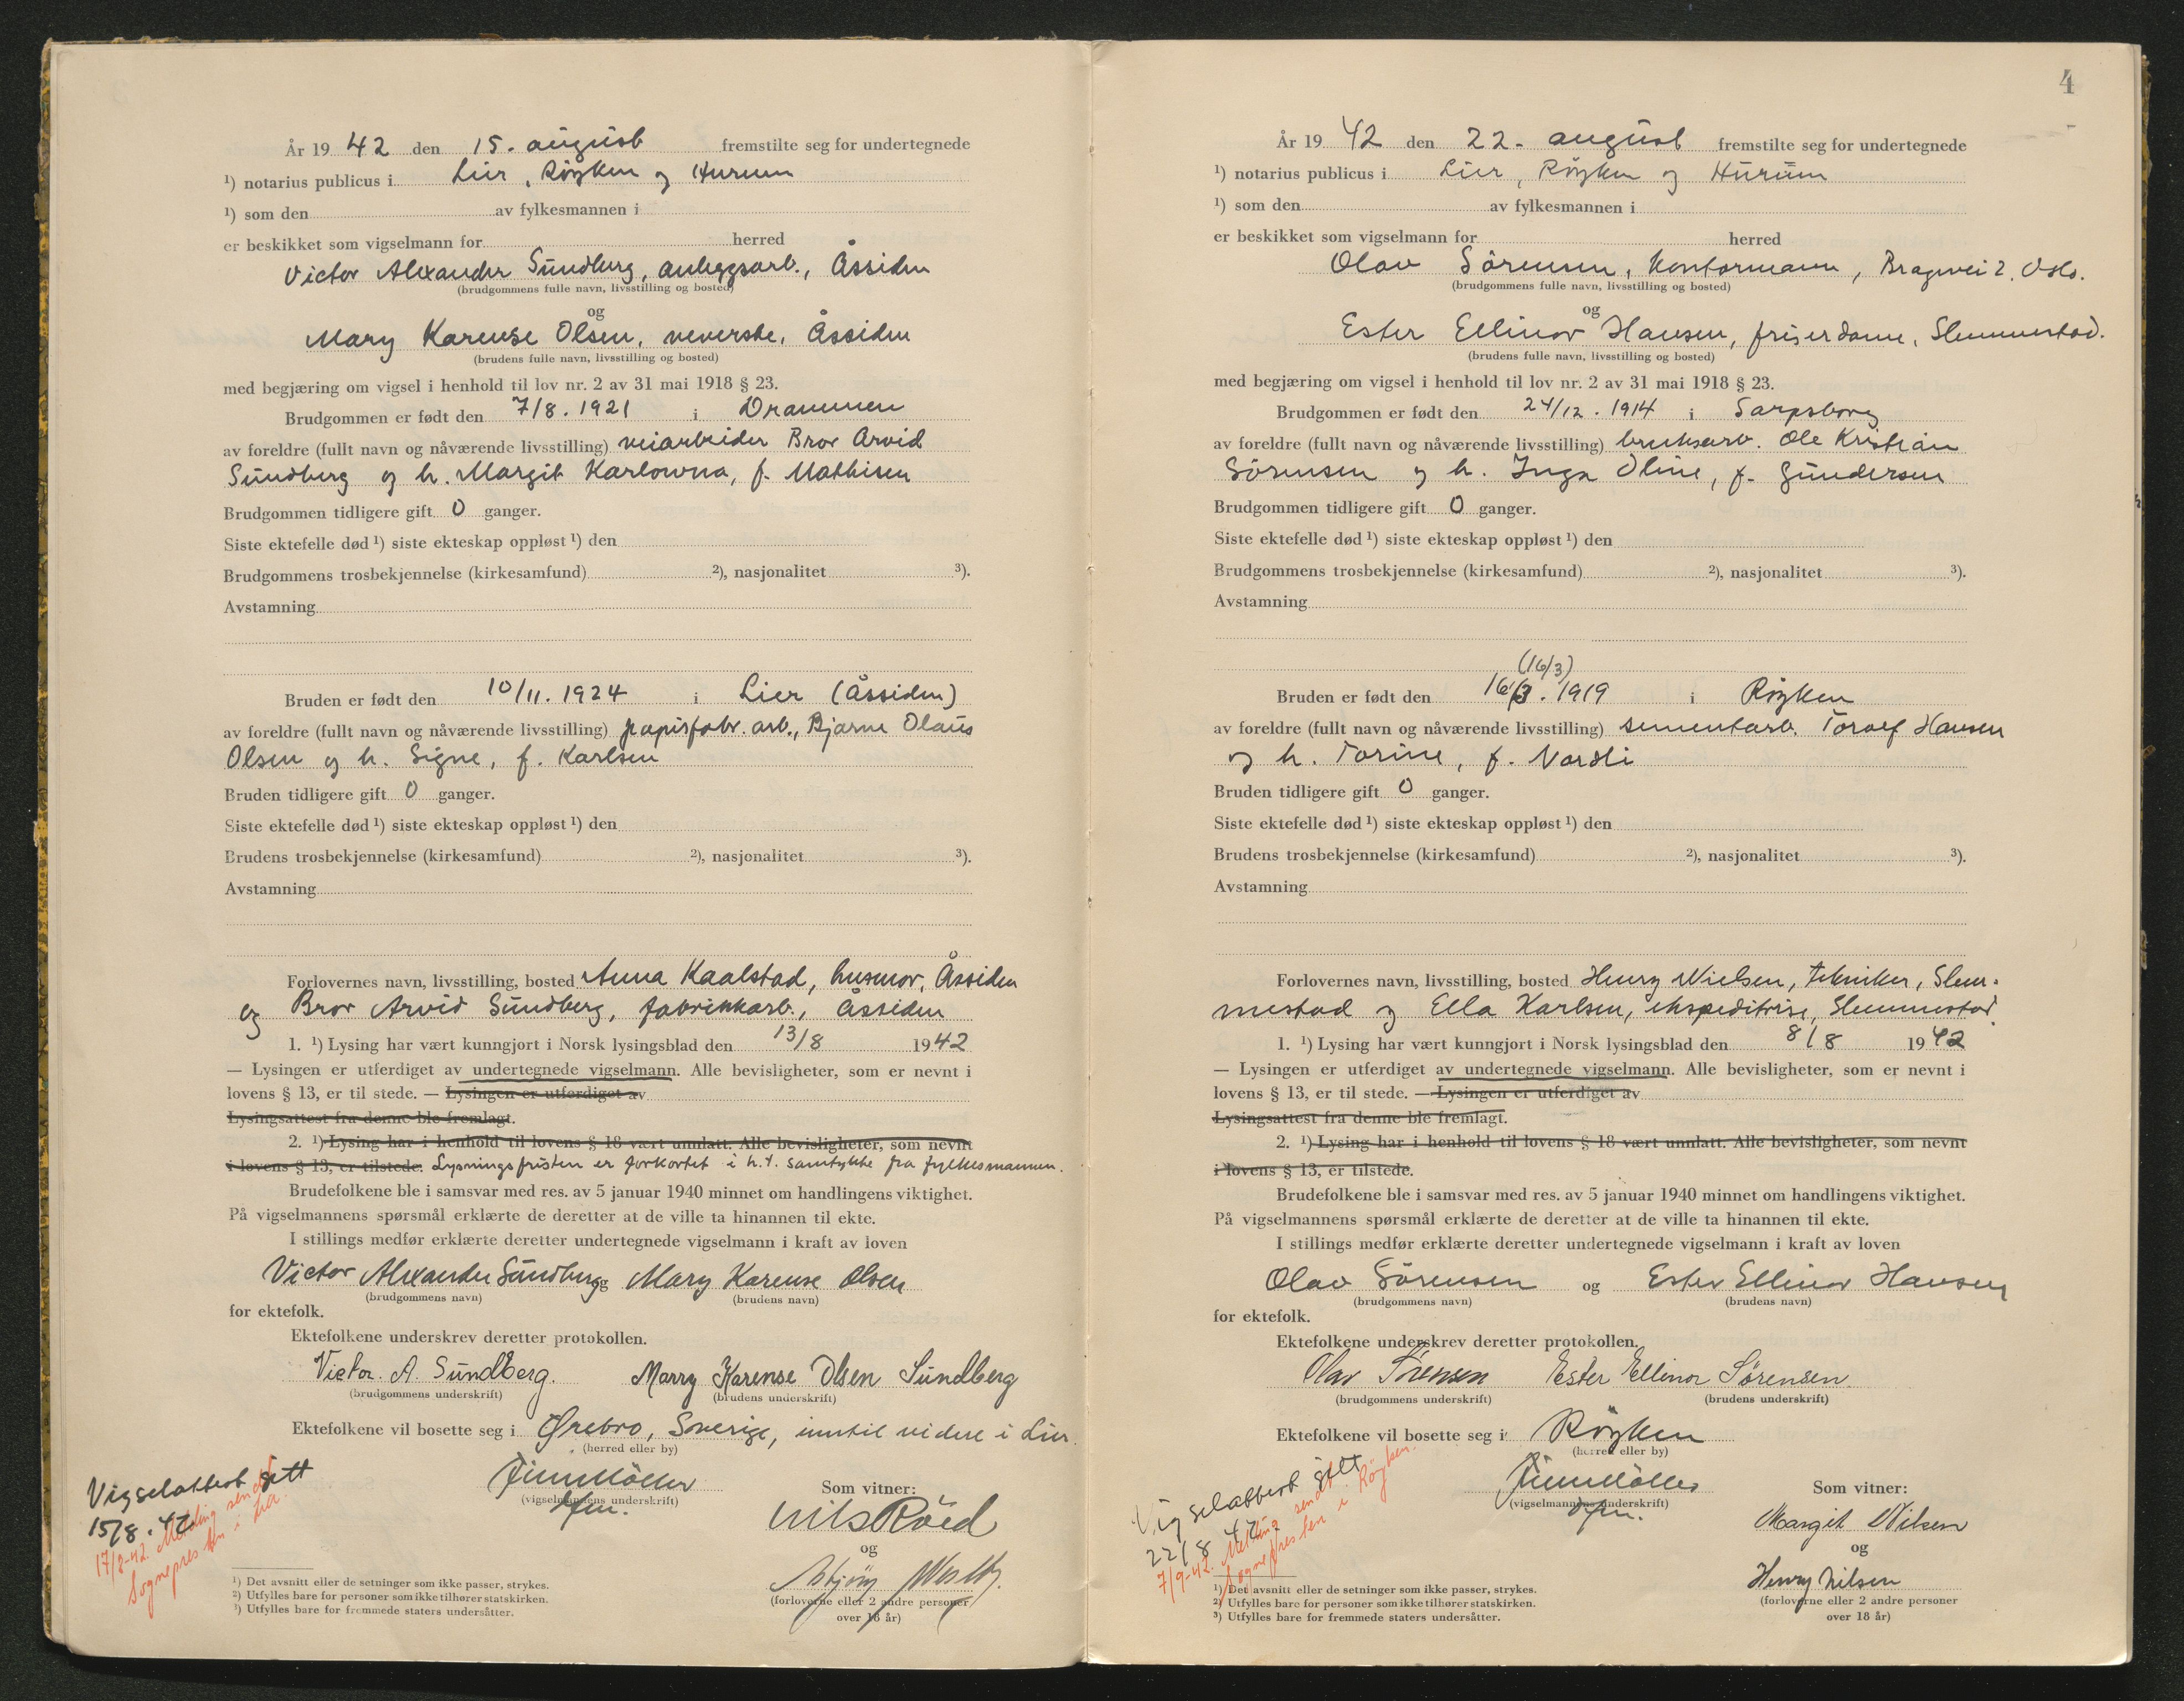 År 19 42 den 15. august fremstilte seg for undertegnede
¹) notarius publicus i Lier, Röyken og Hurum
¹) som den av fylkesmannen i
er beskikket som vigselmann for herred
Victor Alexander Sundberg, anleggsarb., Åssiden
(brudgommens fulle navn, livsstilling og bosted)
og
Mary Karense Olsen, veverske, Åssiden
(brudens fulle navn, livsstilling og bosted)
med begjæring om vigsel i henhold til lov nr. 2 av 31 mai 1918 § 23.
Brudgommen er født den 7/8. 1921 i Drammen
av foreldre (fullt navn og nåværende livsstilling) veiarbeider Bror Arvid
Sundberg og h. Margit Karlowna, f. Mathisen
Brudgommen tidligere gift 0 ganger.
Siste ektefelle død ¹) siste ekteskap oppløst ¹) den
Brudgommens trosbekjennelse (kirkesamfund) ²), nasjonalitet ³).
Avstamning
Bruden er født den 10/11. 1924 i Lier (Åssiden)
av foreldre (fullt navn og nåværende livsstilling) papirfabr. arb., Bjarne Olaus
Olsen og h. Signe, f. Karlsen
Bruden tidligere gift 0 ganger.
Siste ektefelle død ¹) siste ekteskap oppløst ¹) den
Brudens trosbekjennelse (kirkesamfund) ²), nasjonalitet ³).
Avstamning
Forlovernes navn, livsstilling, bosted Anna Kaalstad, husmor, Åssiden
og Bror Arvid Sundberg, fabrikkarb., Åssiden
1. ¹) Lysing har vært kunngjort i Norsk lysingsblad den 13/8 1942
— Lysingen er utferdiget av undertegnede vigselmann. Alle bevisligheter, som er nevnt i
lovens § 13, er til stede. — Lysingen er utferdiget av
Lysingsattest fra denne ble fremlagt.
2. ¹) Lysing har i henhold til lovens § 18 vært unnlatt. Alle bevisligheter, som nevnt
i lovens § 13, er tilstede. Lysningsfristen er forkortet i h.t. samtykke fra fylkesmannen.
Brudefolkene ble i samsvar med res. av 5 januar 1940 minnet om handlingens viktighet.
På vigselmannens spørsmål erklærte de deretter at de ville ta hinannen til ekte.
I stillings medfør erklærte deretter undertegnede vigselmann i kraft av loven
Victor Alexander Sundberg og Mary Karense Olsen
(brudgommens navn) (brudens navn)
for ektefolk.
Ektefolkene underskrev deretter protokollen.
Victor. A. Sundberg. Marry Karense Olsen Sundberg
(brudgommens underskrift) (brudens underskrift)
Ektefolkene vil bosette seg i Ørebro, Sverige, inntil videre i Lier.
(herred eller by)
Vigselattest gitt
15/8. 42
17/8-42. Melding sendt
Sognepresten i Lier.
(vigselmannens underskrift)
Som vitner:
Nils Röed
og
(forloverne eller 2 andre personer
over 18 år)
¹) Det avsnitt eller de setninger som ikke passer, strykes.
²) Utfylles bare for personer som ikke tilhører statskirken.
³) Utfylles bare for fremmede staters undersåtter.
4
År 19 42 den 22. august fremstilte seg for undertegnede
¹) notarius publicus i Lier, Röyken og Hurum
¹) som den av fylkesmannen i
er beskikket som vigselmann for herred
Olav Sörensen, Kontormann, Bragevei 2, Oslo.
(brudgommens fulle navn, livsstilling og bosted)
og
Ester Ellinor Hansen, friserdame, Slemmestad.
(brudens fulle navn, livsstilling og bosted)
med begjæring om vigsel i henhold til lov nr. 2 av 31 mai 1918 § 23.
Brudgommen er født den 24/12. 1914 i Sarpsborg
av foreldre (fullt navn og nåværende livsstilling) bruksarb. Ole Kristian
Sörensen og h. Inga Oline, f. Gundersen
Brudgommen tidligere gift 0 ganger.
Siste ektefelle død ¹) siste ekteskap oppløst ¹) den
Brudgommens trosbekjennelse (kirkesamfund) ²), nasjonalitet ³).
Avstamning
(16/3)
Bruden er født den 16/3. 1919 i Röyken
av foreldre (fullt navn og nåværende livsstilling) sementarb. Toralf Hansen
og h. Torine, f. Nordli
Bruden tidligere gift 0 ganger.
Siste ektefelle død ¹) siste ekteskap oppløst ¹) den
Brudens trosbekjennelse (kirkesamfund) ²), nasjonalitet ³).
Avstamning
Forlovernes navn, livsstilling, bosted Henry Nielsen, tekniker, Slem-
mestad og Ella Karlsen, ekspeditrise, Slemmestad.
1. ¹) Lysing har vært kunngjort i Norsk lysingsblad den 8/8 1942
— Lysingen er utferdiget av undertegnede vigselmann. Alle bevisligheter, som er nevnt i
lovens § 13, er til stede. — Lysingen er utferdiget av
Lysingsattest fra denne ble fremlagt.
2. ¹) Lysing har i henhold til lovens § 18 vært unnlatt. Alle bevisligheter, som nevnt
i lovens § 13, er tilstede.
Brudefolkene ble i samsvar med res. av 5 januar 1940 minnet om handlingens viktighet.
På vigselmannens spørsmål erklærte de deretter at de ville ta hinannen til ekte.
I stillings medfør erklærte deretter undertegnede vigselmann i kraft av loven
Olav Sörensen og Ester Ellinor Hansen
(brudgommens navn) (brudens navn)
for ektefolk.
Ektefolkene underskrev deretter protokollen.
Olav Sörensen Ester Ellinor Sørensen.
(brudgommens underskrift) (brudens underskrift)
Ektefolkene vil bosette seg i Röyken
(herred eller by)
Vigselattest gitt
22/8 42
7/9-42. Melding sendt
Sognepresten i Röyken.
(vigselmannens underskrift)
Som vitner:
Margit Nilsen
og
Henry Nilsen
(forloverne eller 2 andre personer
over 18 år)
¹) Det avsnitt eller de setninger som ikke passer, strykes.
²) Utfylles bare for personer som ikke tilhører statskirken.
³) Utfylles bare for fremmede staters undersåtter.